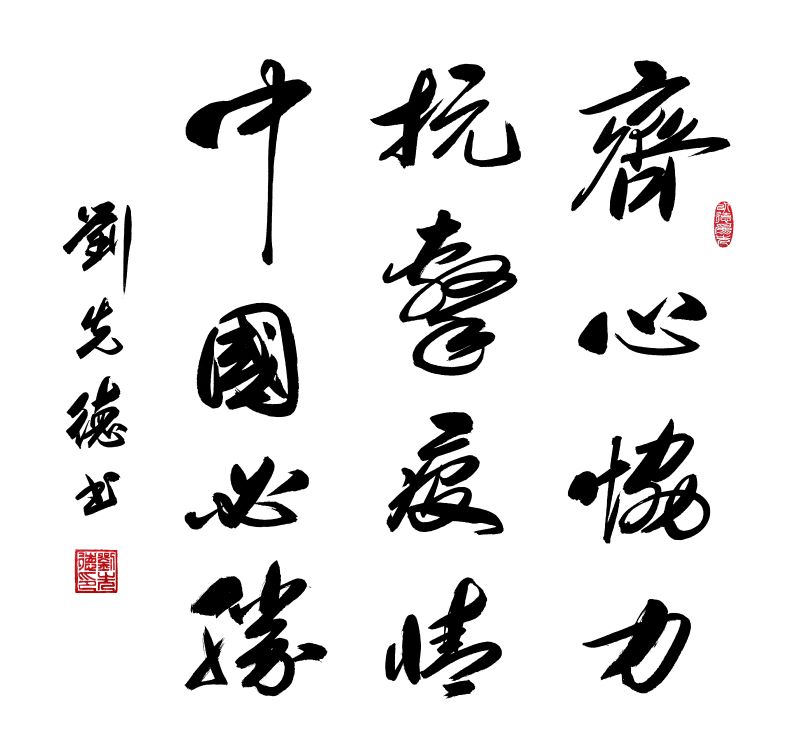 齊心協力
抗擊疫情
中國必勝
劉先德书